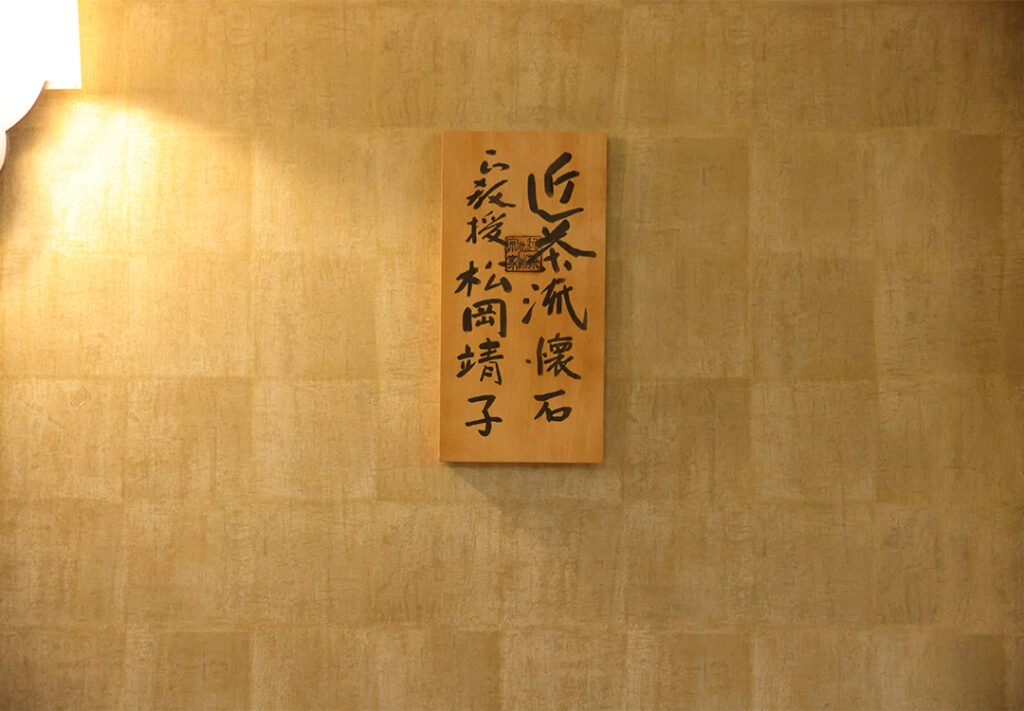 近茶流懐石
正教授松岡靖子